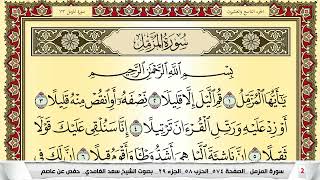 الجزء التاسع والعشرون
سورة المزمل ٧٣
سُورَةُ المُزَّمِّلِ
بِسْمِ اللَّهِ الرَّحْمَٰنِ الرَّحِيمِ
يَا أَيُّهَا الْمُزَّمِّلُ ١ قُمِ اللَّيْلَ إِلَّا قَلِيلًا ٢ نِّصْفَهُ أَوِ انقُصْ مِنْهُ قَلِيلًا ٣
أَوْ زِدْ عَلَيْهِ وَرَتِّلِ الْقُرْآنَ تَرْتِيلًا ٤ إِنَّا سَنُلْقِي عَلَيْكَ قَوْلًا
ثَقِيلًا ٥ إِنَّ نَاشِئَةَ اللَّيْلِ هِيَ أَشَدُّ وَطْئًا وَأَقْوَمُ قِيلًا ٦
سورة المزمل . الصفحة ٥٧٤ . الحزب ٥٨ . الجزء ٢٩ . بصوت الشيخ سعد الغامدي . حفص عن عاصم
2